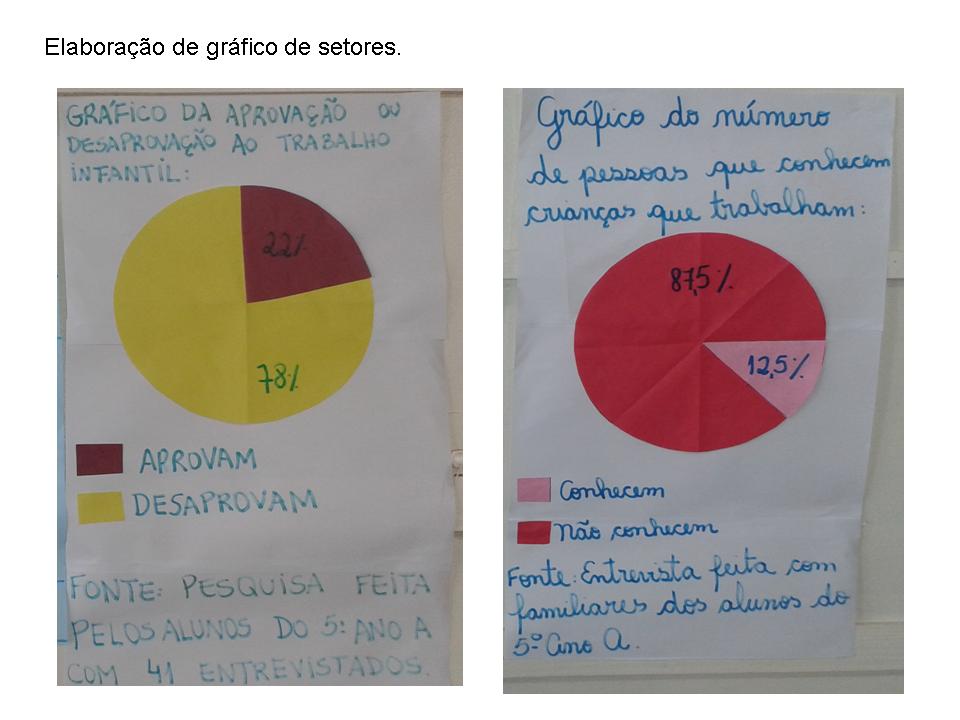 Elaboração de gráfico de setores.
GRÁFICO DA APROVAÇÃO OU
DESAPROVAÇÃO AO TRABALHO
INFANTIL:
22%
78%
APROVAM
DESAPROVAM
FONTE: PESQUISA FEITA
PELOS ALUNOS DO 5º ANO A
COM 41 ENTREVISTADOS.
Gráfico do número
de pessoas que conhecem
crianças que trabalham:
87,5%
12,5%
Conhecem
Não conhecem
Fonte: Entrevista feita com
familiares dos alunos do
5º Ano A.